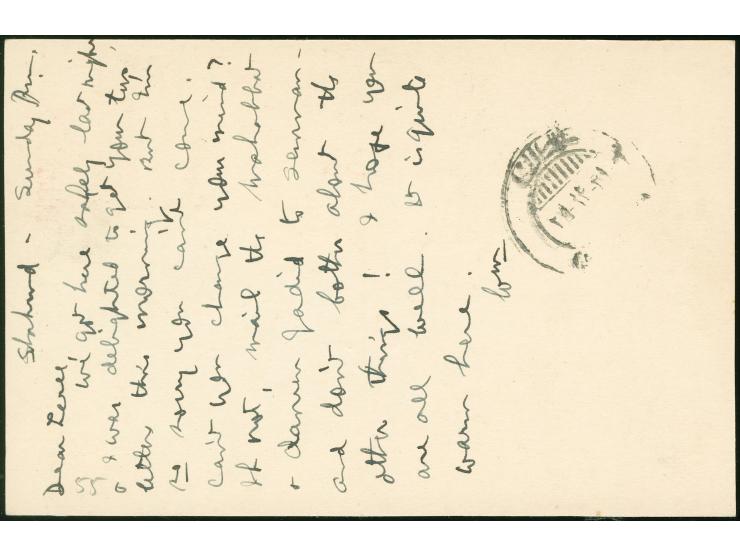 Shahrud - Sunday Pm.
Dear
We got here safely last night
& I was delighted to get your two
letters this morning. But I'm
so sorry you can't come.
Can't you change your mind?
If not, mail the Mahabbat
& damen jadid to Semnan -
and don't bother about the
other things! I hope you
are all well. It is quite
warm here.